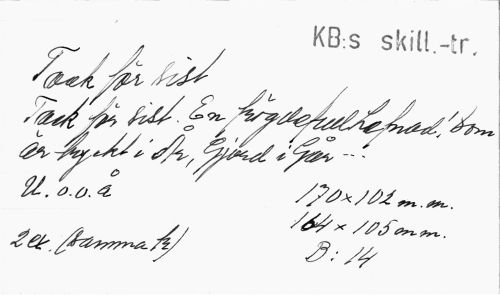 KB:s skill.-tr.
Tack för sist
Tack för sist. En högdefull Lefnad, som
är tryckt i År, Gjord i Går ---
U.o.o.å
170x102 m.m.
164x105 mm.
2 ex. (samma tr)
B: 14